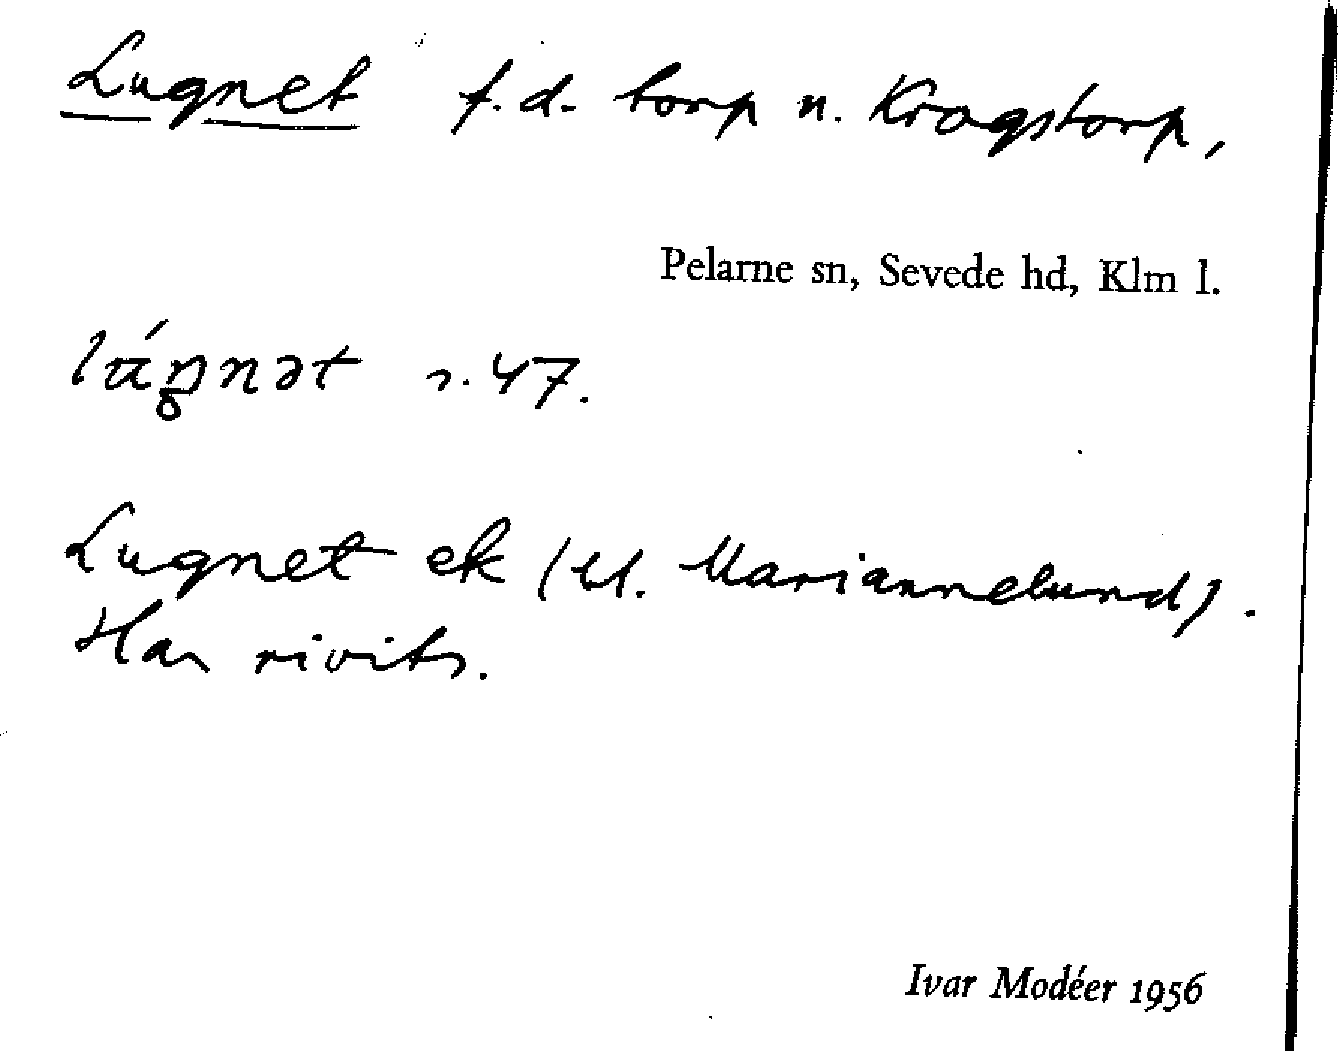 Lugnet f.d. torp u. Kragstorp,
Pelarne sn, Sevede hd, Klm l.
lúŋnət s. 47.
Lugnet ek (bl. Mariannelund).
Har rivits.
Ivar Modéer 1956